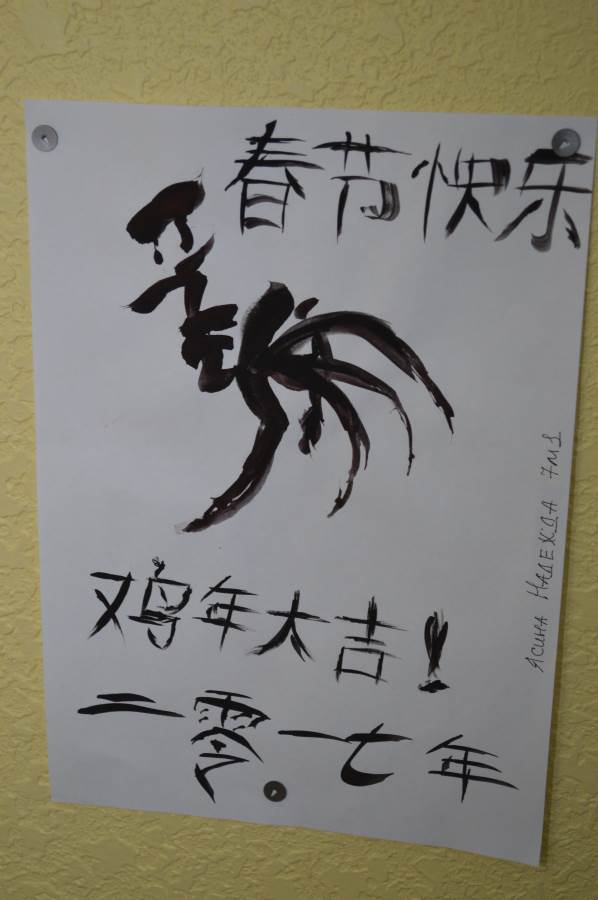 春节快乐
鸡年大吉!
二零一七年
Ясина Надежда 7м1